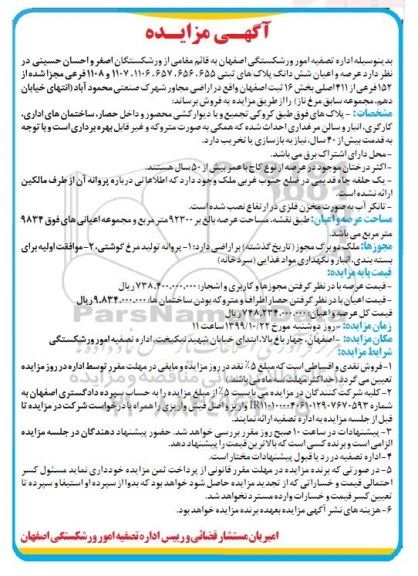 آگهـی مزایـده
بدینوسیله اداره تصفیه امور ورشکستگی اصفهان به قائم مقامی از ورشکستگان اصغر و احسان حسینی در
نظر دارد عرصه و اعیان شش دانگ پلاک های ثبتی ۶۵۵، ۶۵۶، ۶۵۷، ۱۱۰۶، ۱۱۰۷ و ۱۱۰۸ فرعی مجزا شده از
۱۵۲ فرعی از ۴۱۱ اصلی بخش ۱۶ ثبت اصفهان واقع در اراضی مجاور شهرک صنعتی محمود آباد (انتهای خیابان
دهم، مجموعه سابق مرغ ناز) را از طریق مزایده به فروش برساند:
مشخصات: - پلاک های فوق طبق کروکی تجمیع و با دیوارکشی محصور و داخل حصار، ساختمان های اداری،
کارگری، انبار و سالن مرغداری احداث شده که همگی به صورت متروکه و غیر قابل بهره برداری است و با توجه
به قدمت بیش از ۴۰ سال، نیاز به بازسازی یا تخریب دارد.
- محل دارای اشتراک برق می باشد.
- اکثر درختان موجود در عرصه از نوع کاج با عمر بیش از ۵۰ سال هستند.
- یک حلقه چاه قدیمی در ضلع جنوب غربی ملک وجود دارد که اطلاعاتی درباره پروانه آن از طرف مالکین
ارائه نشده است.
- تانکر آب به صورت مخزن فلزی در ارتفاع نصب شده است.
مساحت عرصه و اعیان: طبق نقشه، مساحت عرصه بالغ بر ۹۲۳۰۰ متر مربع و مجموعه اعیانی های فوق ۹۸۳۴
متر مربع می باشد.
مجوزها: ملک دو برگ مجوز (تاریخ گذشته) بر اراضی دارد: ۱- پروانه تولید مرغ گوشتی، ۲- موافقت اولیه برای
بسته بندی، انبار و نگهداری مواد غذایی (سردخانه)
قیمت پایه مزایده:
- قیمت عرصه با در نظر گرفتن مجوزها و کاربری و اشجار: ۷۳۸,۴۰۰,۰۰۰,۰۰۰ ریال
- قیمت اعیان با در نظر گرفتن حصار اطراف و متروکه بودن ساختمان ها: ۹,۸۳۴,۰۰۰,۰۰۰ ریال
قیمت کل عرصه و اعیان: ۷۴۸,۲۳۴,۰۰۰,۰۰۰ ریال
زمان مزایده: - روز دوشنبه مورخ ۱۳۹۹/۱۰/۲۲ ساعت ۱۱
مکان مزایده: - اصفهان، چهار باغ بالا، ابتدای خیابان شهید نیکبخت، اداره تصفیه امور ورشکستگی
شرایط مزایده:
۱- فروش نقدی و اقساطی است که مبلغ ۵٪ نقد در روز مزایده و مابقی در مهلت مقرر توسط اداره در روز مزایده
تعیین می گردد (حداکثر مهلت سه ماه می باشد)
۲- کلیه شرکت کنندگان در مزایده می بایست ۵٪ از مبلغ مزایده را به حساب سپرده دادگستری اصفهان به
شماره واریز و اصل فیش واریزی را همراه با درخواست شرکت در مزایده تا
قبل از جلسه مزایده به اداره تصفیه ارائه نمایند.
۳- پیشنهادات در ساعت ۱۰ صبح روز مقرر بررسی خواهد شد. حضور پیشنهاد دهندگان در جلسه مزایده
الزامی است و برنده کسی است که بالاترین قیمت را پیشنهاد دهد.
۴- اداره تصفیه در رد یا قبول پیشنهادات مختار است.
۵- در صورتی که برنده مزایده در مهلت مقرر قانونی از پرداخت ثمن مزایده خودداری نماید مسئول کسر
احتمالی قیمت و خساراتی که از تجدید مزایده حاصل شود خواهد بود که بدوا از سپرده او استیفا و سپرده تا
تعیین کسر قیمت و خسارات وارده مسترد نخواهد شد.
۶- هزینه های نشر آگهی مزایده بعهده برنده مزایده خواهد بود.
امیریان مستشار قضائی و رییس اداره تصفیه امور ورشکستگی اصفهان